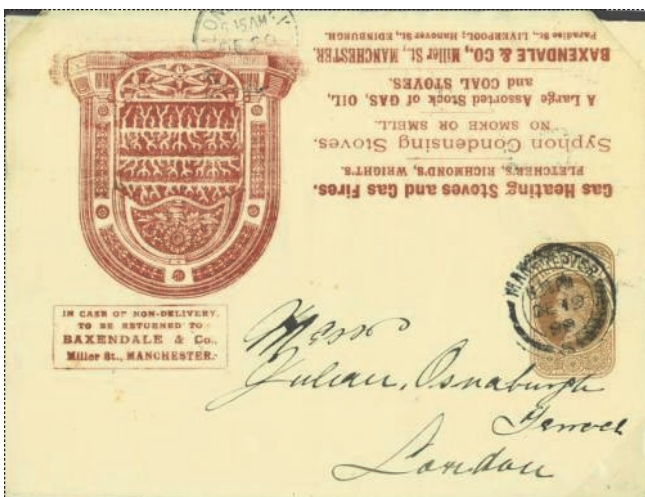 Gas Heating Stoves and Gas Fires.
FLETCHER'S, RICHMOND'S, WRIGHT'S.
Syphon Condensing Stoves.
NO SMOKE OR SMELL.
A Large Assorted Stock of GAS, OIL,
and COAL STOVES.
BAXENDALE & CO., Miller St., MANCHESTER.
Paradise St., LIVERPOOL; Hanover St., EDINBURGH.
IN CASE OF NON-DELIVERY,
TO BE RETURNED TO
BAXENDALE & Co.,
Miller St., MANCHESTER.
MANCHESTER
DE 19
98
Messrs
Julian, Osnaburgh
Terrace
London